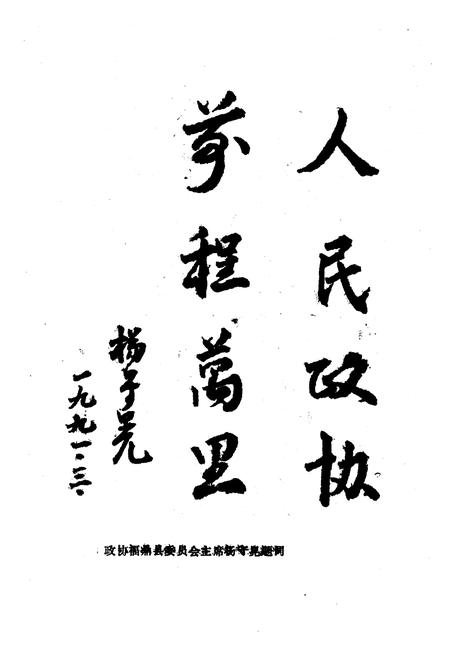 人民政协
前程萬里
杨守晃
一九九一·三·
政协福鼎县委员会主席杨守晃题词